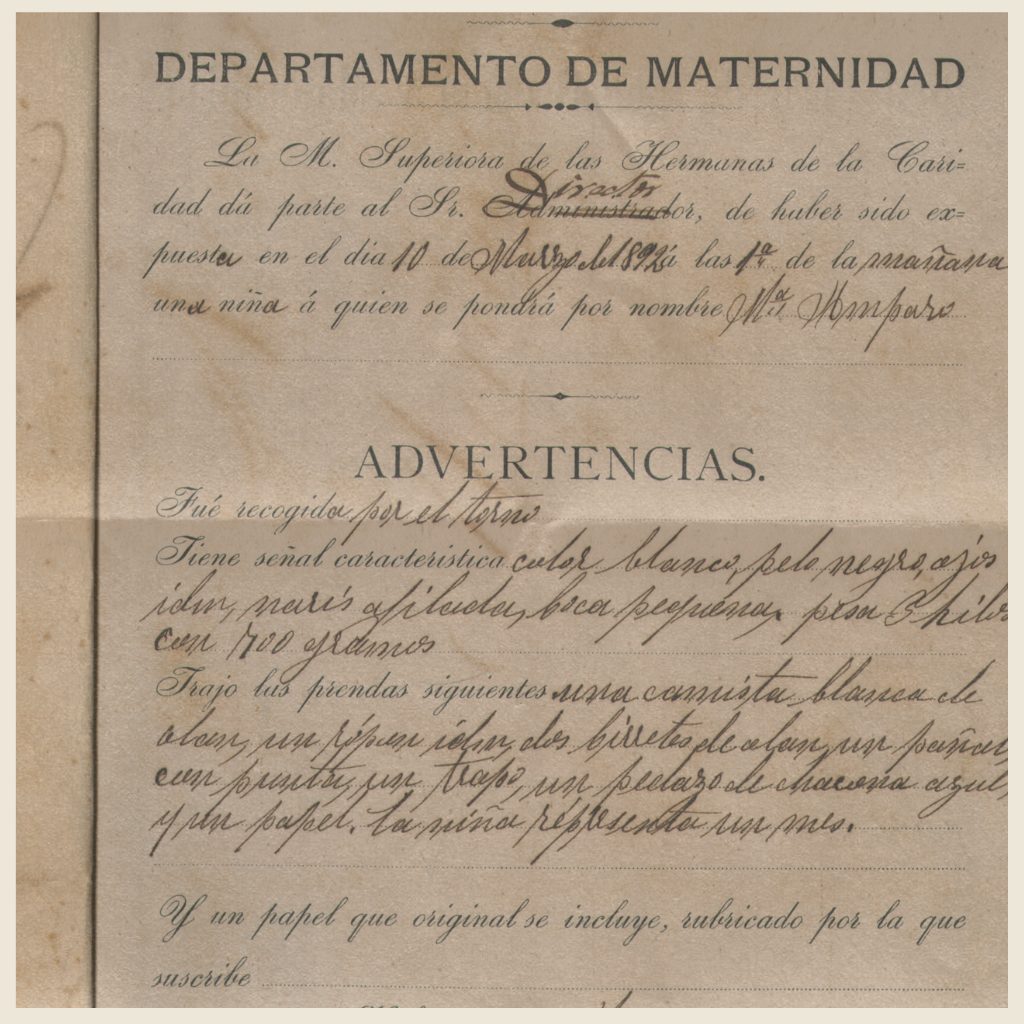 DEPARTAMENTO DE MATERNIDAD
La M. Superiora de las Hermanas de la Cari=
Director
dad dá parte al Sr. Administrador, de haber sido ex=
puesta en el dia 10 de Marzo de 1892 á las 1ª de la mañana
una niña á quien se pondrá por nombre Mª Amparo
ADVERTENCIAS.
Fué recogida por el torno
Tiene señal caracteristica color blanco, pelo negro, ojos
idm, naris afilada, boca pequena. pesa 3 kilos
con 700 gramos
Trajo las prendas siguientes una camista blanca de
olan, un ropon idm, dos birretes de olan, un pañal
con punta, un trapo, un pedazo de chacona azul,
y un papel. la niña representa un mes.
Y un papel que original se incluye, rubricado por la que
suscribe